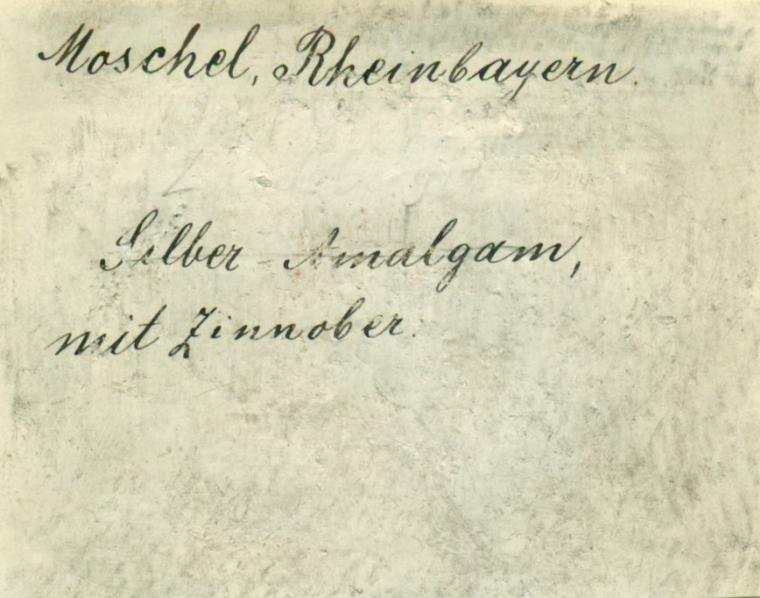 Moschel, Rheinbayern.
Silber-Amalgam,
mit Zinnober.